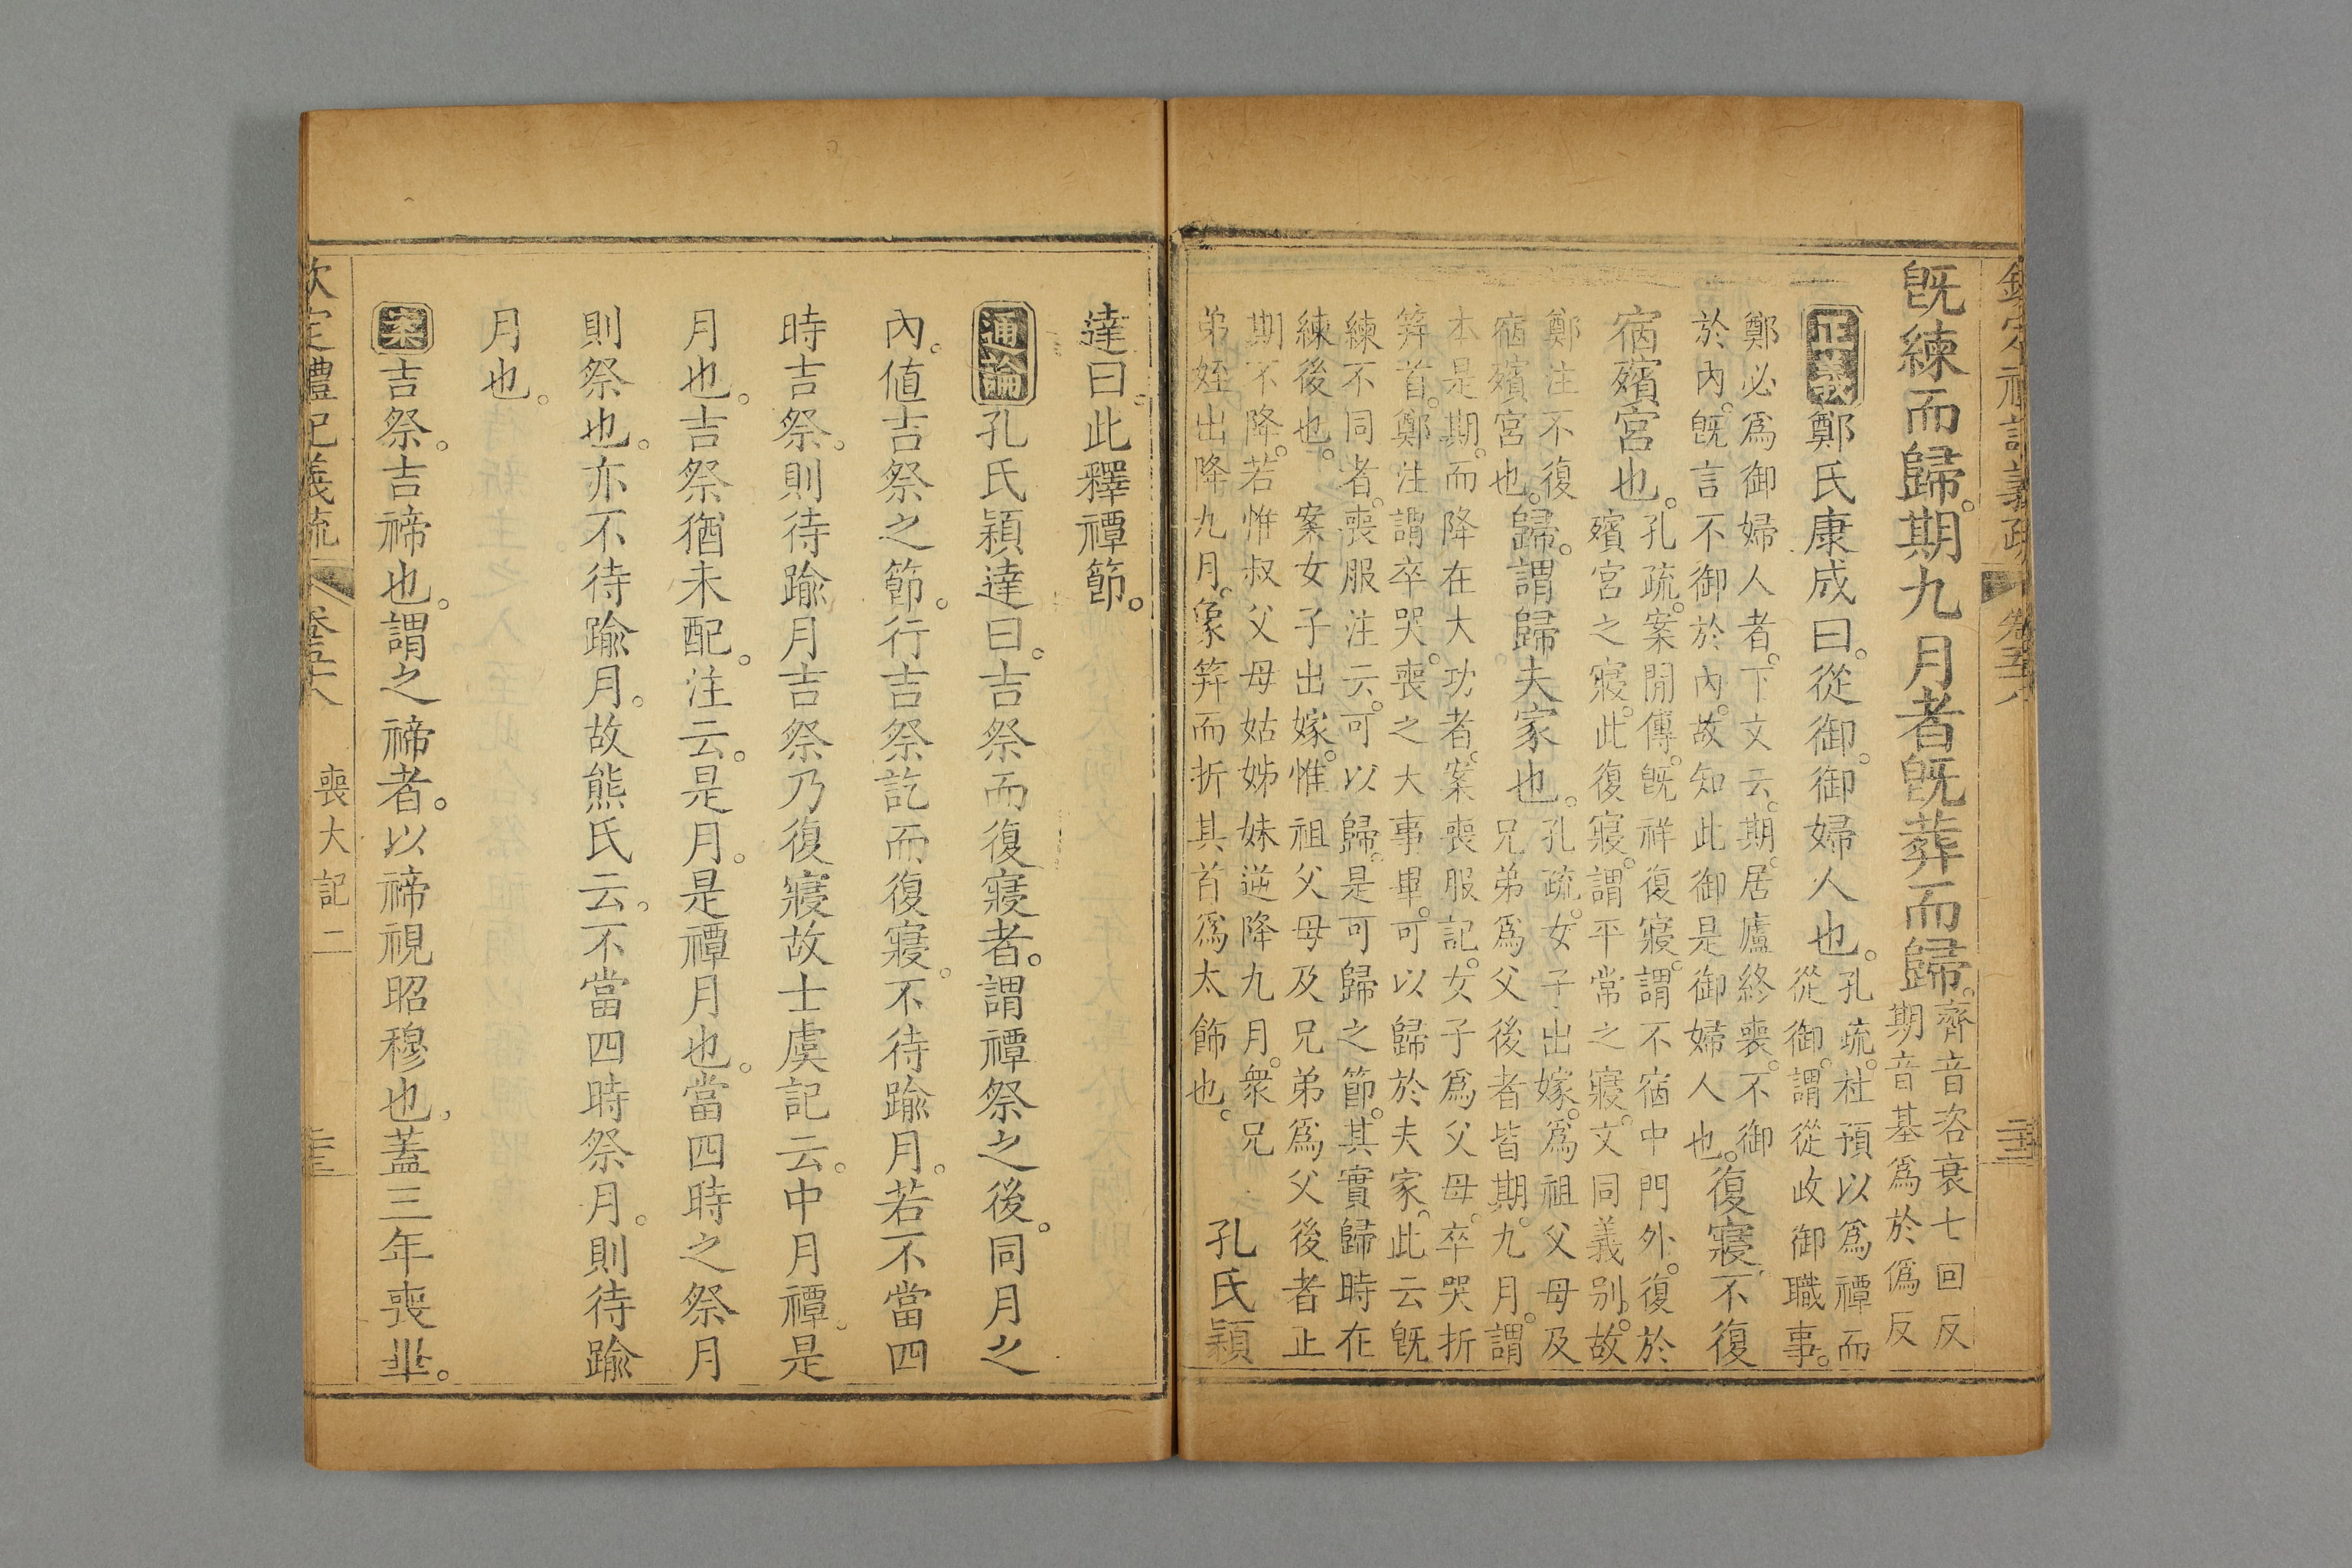 欽定禮記義疏 卷五十八
既練而歸。期九月者既葬而歸。齊音咨衰七回反
期音基爲於僞反
正義鄭氏康成曰。從御。御婦人也。孔疏。杜預以爲禫而
從御。謂從政御職事。
鄭必爲御婦人者。下文云。期。居廬終喪。不御
於內。既言不御於內。故知此御是御婦人也。復寢。不復
宿殯宮也。孔疏。案閒傳。既祥復寢。謂不宿中門外。復於
殯宮之寢。此復寢。謂平常之寢。文同義别。故
鄭注不復
宿殯宮也。歸。謂歸夫家也。孔疏。女子出嫁。爲祖父母及
兄弟爲父後者皆期。九月。謂
本是期。而降在大功者。案喪服記。女子爲父母。卒哭折
筓首。鄭注謂卒哭。喪之大事畢。可以歸於夫家。此云既
練不同者。喪服注云。可以歸。是可歸之節。其實歸時在
練後也。 案女子出嫁。惟祖父母及兄弟爲父後者止
期不降。若惟叔父母姑姊妹逆降九月。衆兄
弟姪出降九月。象筓而折其首爲太飾也。 孔氏穎
達曰。此釋禫節。
通論孔氏穎達曰。吉祭而復寢者。謂禫祭之後。同月之
內。値吉祭之節。行吉祭訖而復寢。不待踰月。若不當四
時吉祭。則待踰月吉祭乃復寢故士虞記云。中月禫。是
月也。吉祭猶未配。注云。是月。是禫月也。當四時之祭月
則祭也。亦不待踰月。故熊氏云。不當四時祭月。則待踰
月也。
案吉祭。吉禘也。謂之禘者。以禘視昭穆也。蓋三年喪畢。
欽定禮記義疏 卷五十八 喪大記二